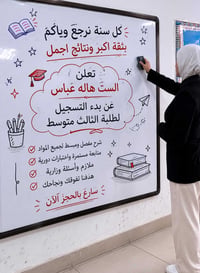 كل سنة نرجع وياكم
بثقة اكبر ونتائج اجمل
تعلن
الست هاله عباس
عن بدء التسجيل
لطلبة الثالث متوسط
شرح مفصل ومبسط لجميع المواد
متابعة مستمرة واختبارات دورية
ملازم وأسئلة وزارية
هدفنا تفوقك ونجاحك
سارع بالحجز الآن